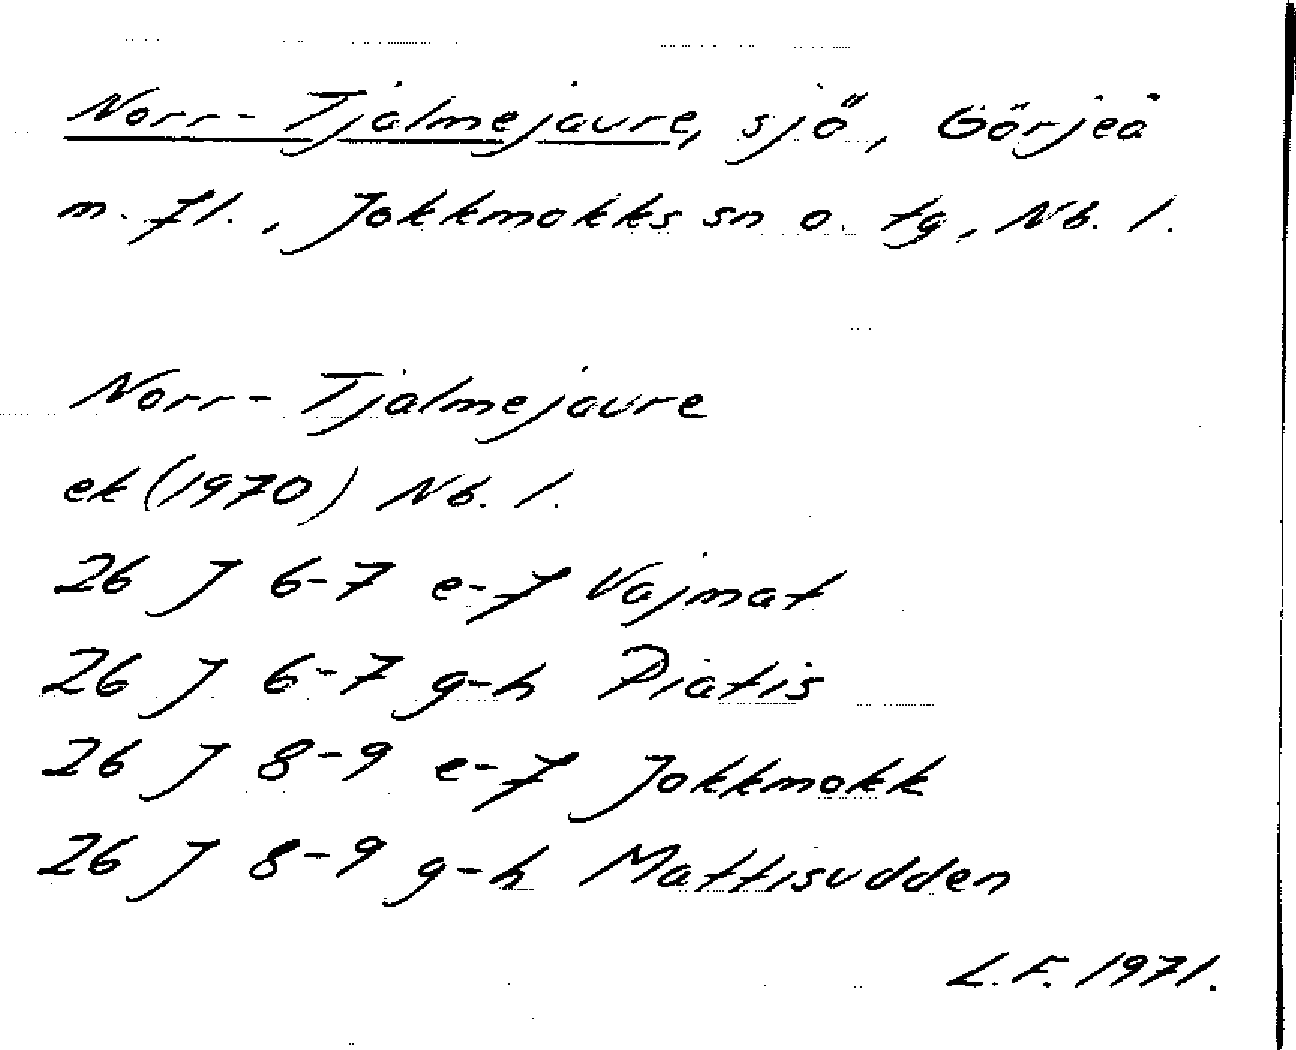 Norr-Tjalmejaure, sjö, Görjeå
m. fl., Jokkmokks sn o. tg, Nb. l.
Norr-Tjalmejaure
ek (1970) Nb. l.
26 J 6-7 e-f Vajmat
26 J 6-7 g-h Piatis
26 J 8-9 e-f Jokkmokk
26 J 8-9 g-h Mattisudden
L.F. 1971.